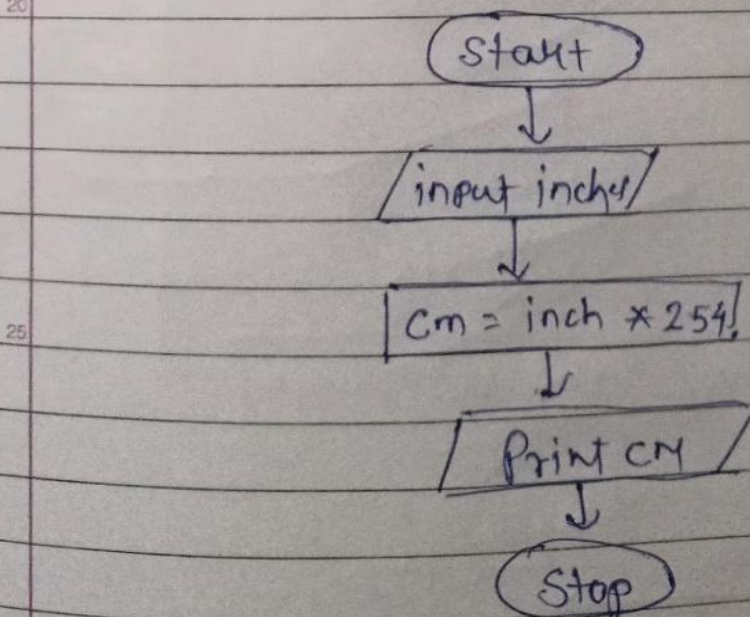 20
Start
input inches
25
cm = inch * 254
Print CM
Stop